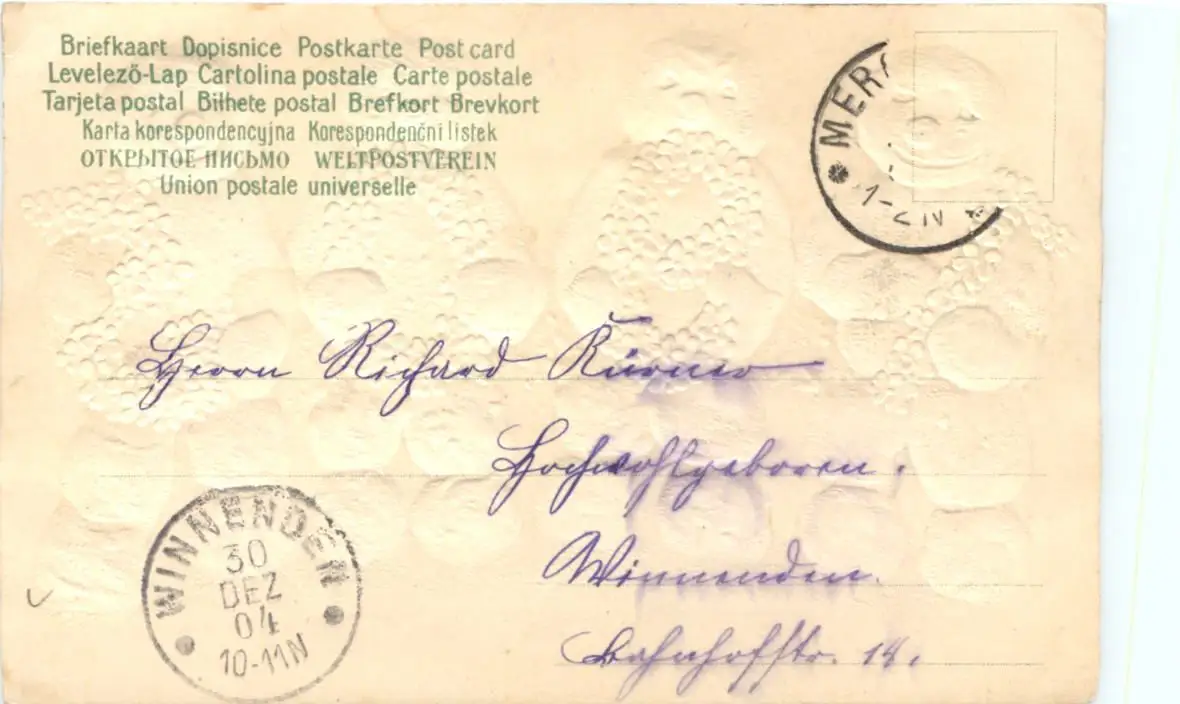 Briefkaart Dopisnice Postkarte Post card
Levelező-Lap Cartolina postale Carte postale
Tarjeta postal Bilhete postal Brefkort Brevkort
Karta korespondencyjna Korespondenční listek
ОТКРЫТОЕ ПИСЬМО WELTPOSTVEREIN
Union postale universelle
MER
1-2 N
Herrn Richard Kürner
Hochwohlgeboren.
Winnenden.
Bahnhofstr. 18.
WINNENDEN
30
DEZ
04
10-11N